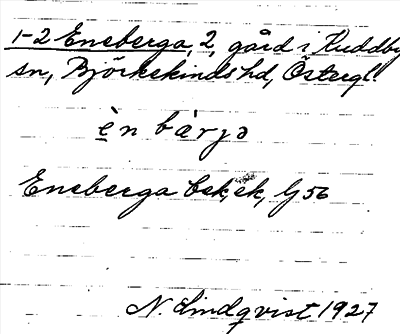 1-2 Eneberga, 2, gård i Kuddby
sn, Björkekinds hd, Östergl.
è̱n bàrja
Eneberga bek, ek, G 56
N. Lindqvist 1927